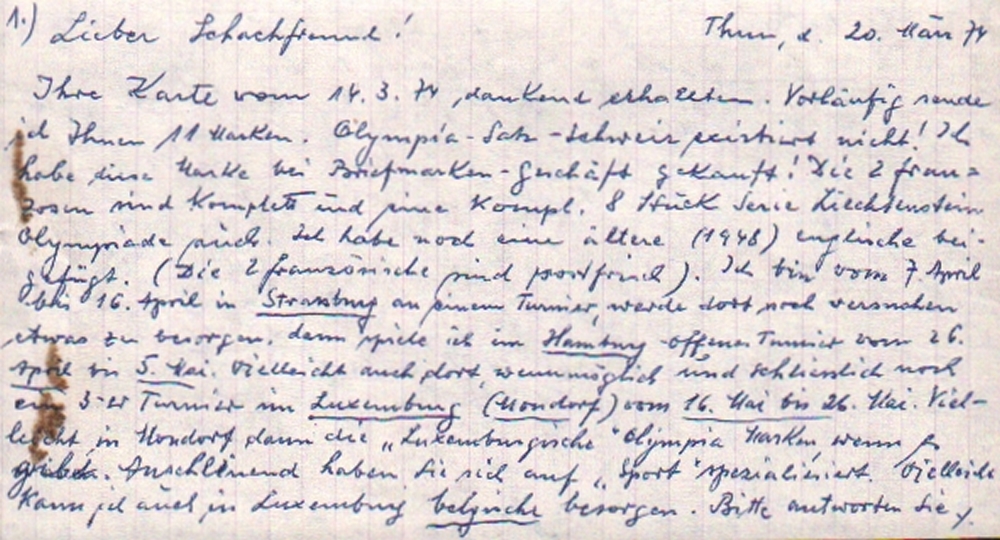 1.) Lieber Schachfreund! Thun, d. 20. März 74
Ihre Karte vom 14. 3. 74 dankend erhalten. Vorläufig sende
ich Ihnen 11 Marken. Olympia-Satz-Schweiz existiert nicht! Ich
habe eine Marke bei Briefmarken-Geschäft gekauft! Die 2 fran=
zosen sind Komplett und eine Kompl. 8 Stück Serie Liechtenstein
Olympiade auch. Ich habe noch eine ältere (1948) englische bei-
gefügt. (Die 2 französische sind postfrisch). Ich bin vom 7. April
bis 16. April in Strassburg an einem Turnier, werde dort noch versuchen
etwas zu besorgen, dann spiele ich im Hamburg offenes Turnier vom 26.
April bis 5. Mai. Vielleicht auch dort, wenn möglich und schliesslich noch
ein 3-er Turnier im Luxemburg (Mondorf) vom 16. Mai bis 26. Mai. Viel-
leicht in Mondorf dann die „Luxemburgische“ Olympia Marken, wenn es
geben. Anschlinend haben Sie sich auf „Sport“ spezialisiert. Vielleicht
Kann ich auch in Luxemburg belgische besorgen. Bitte antworten Sie